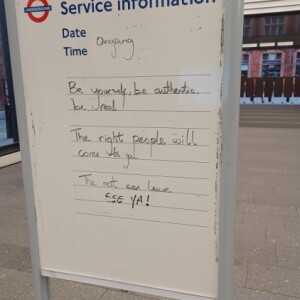 UNDERGROUND
Service information
Date
Ongoing
Time
Be yourself, be authentic,
be real
The right people will
come to you
The rest can leave
SEE YA!